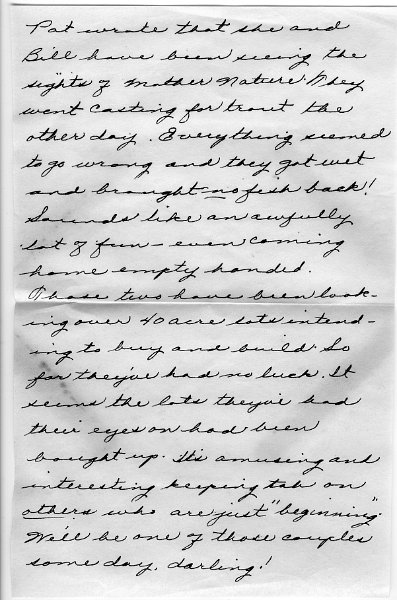 Pat wrote that she and
Bill have been seeing the
sights of Mother Nature. They
went casting for trout the
other day. Everything seemed
to go wrong and they got wet
and brought no fish back!
Sounds like an awfully
lot of fun - even coming
home empty handed.
Those two have been look-
ing over 40 acre lots intend-
ing to buy and build. So
far they've had no luck. It
seems the lots they've had
their eyes on had been
bought up. It's amusing and
interesting keeping tab on
others who are just "beginning".
We'll be one of those couples
some day, darling!